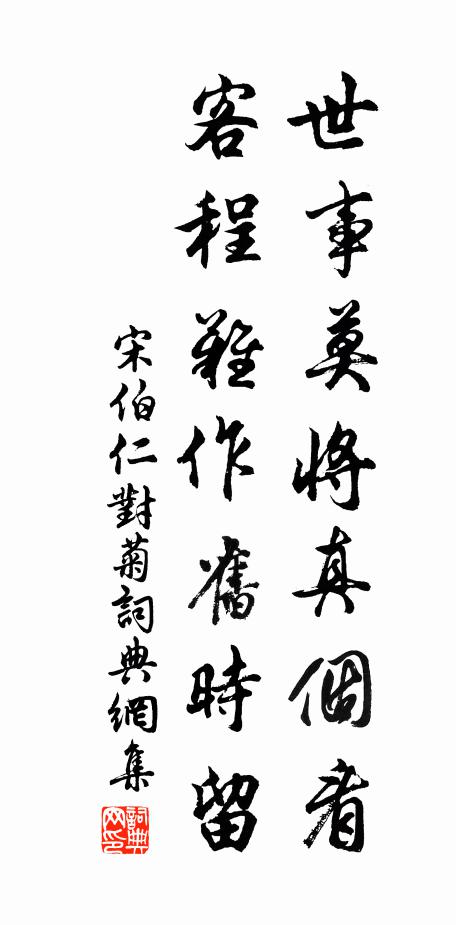 世事莫將真個看
客程難作舊時留
宋伯仁對菊詞典網集
詞典网印